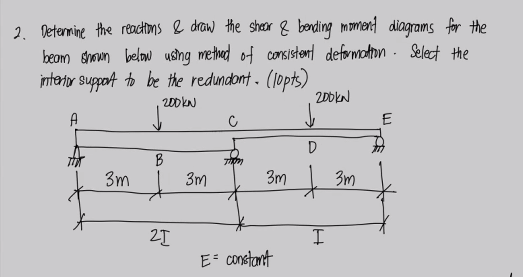 2. Determine the reactions & draw the shear & bending moment diagrams for the
beam shown below using method of consistent deformation. Select the
interior support to be the redundant. (10pts)
200kN
200kN
A
C
E
B
D
3m
3m
3m
3m
2I
I
E = constant